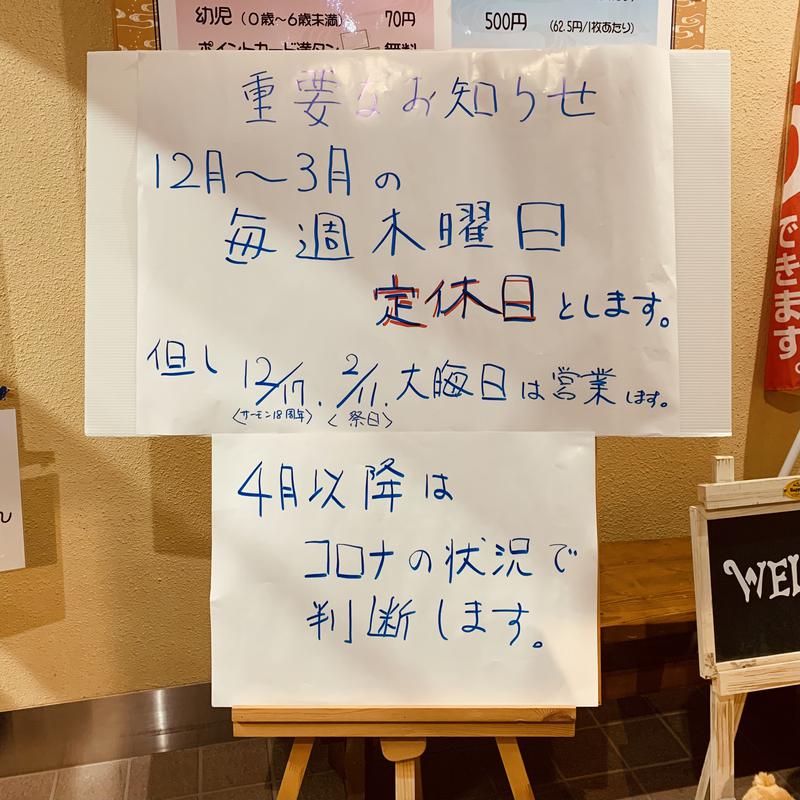 幼児（0歳～6歳未満） 70円
ポイントカード満タン 無料
500円 （62.5円/1枚あたり）
重要なお知らせ
12月～3月の
毎週木曜日
定休日とします。
但し 12/17. 2/11. 大晦日は営業します。
〈サーモン18周年〉 〈祭日〉
4月以降は
コロナの状況で
判断します。
できます。
ん
WEL